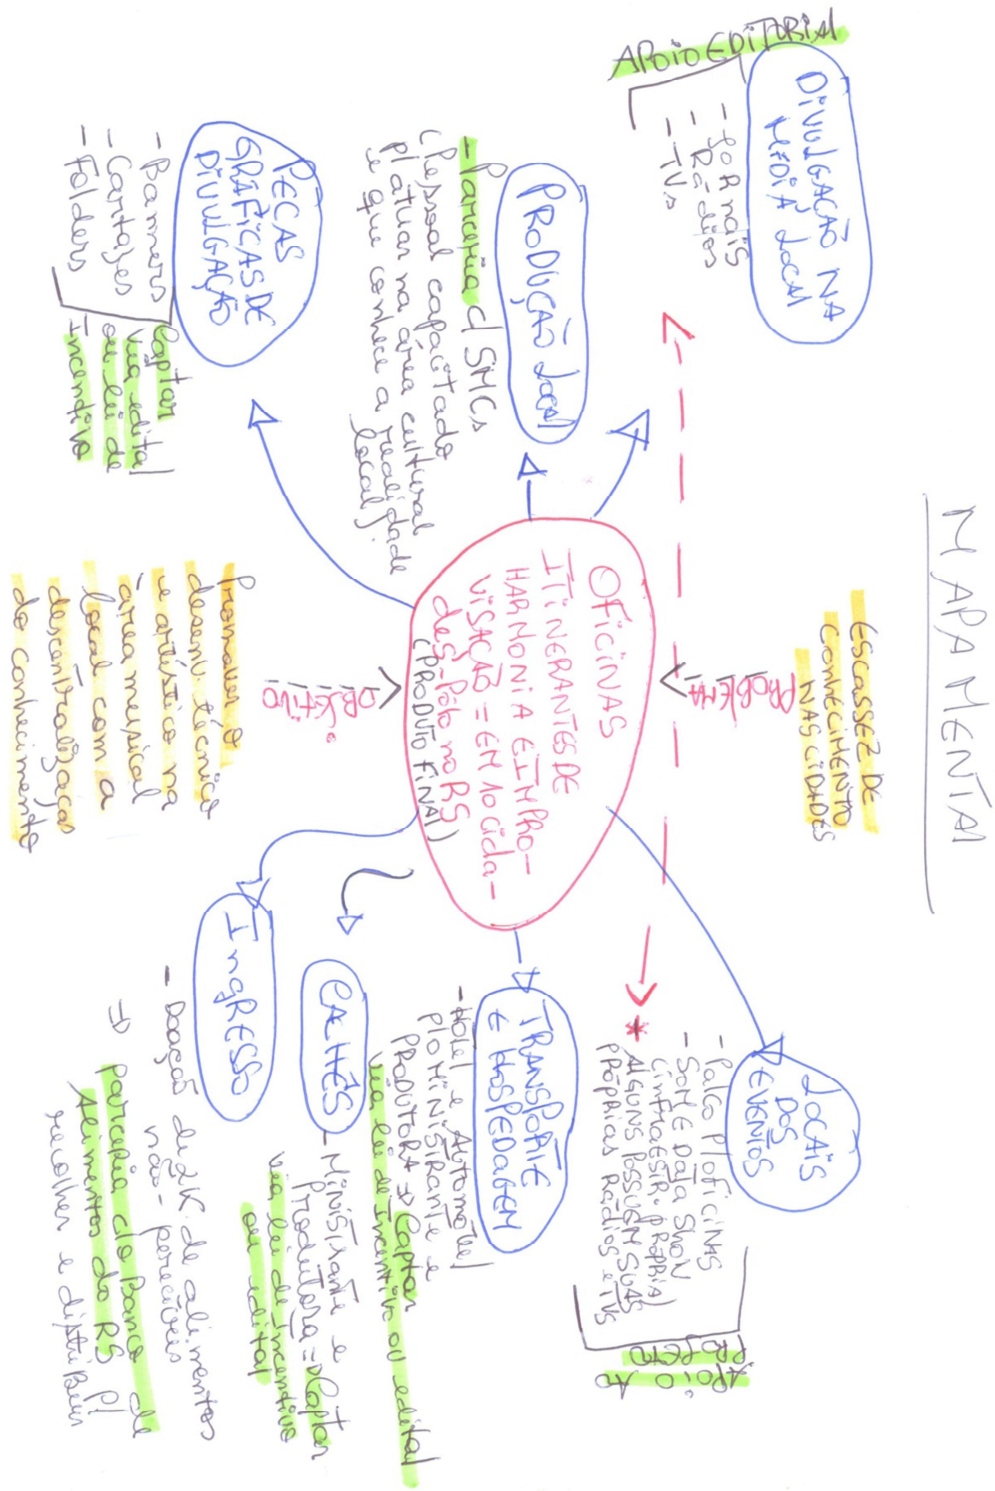 MAPA MENTAL
ESCASSEZ DE
CONHECIMENTO
NAS CIDADES
PROBLEMA
OFICINAS
ITINERANTES DE
HARMONIA E IMPRO-
VISAÇÃO = EM 10 CIDA-
DES-PÓLO NO RS
(PRODUTO FINAL)
OBJETIVO
Promover o
desenv. técnico
e artístico na
área musical
local com a
descentralização
do conhecimento
APOIO EDITORIAL
DIVULGAÇÃO NA
MÍDIA LOCAL
- JORNAIS
- RÁDIOS
- TVs
PRODUÇÃO LOCAL
- Parceria c/ SMCs
(Pessoal capacitado
p/ atuar na área cultural
e que conhece a realidade
local)
PEÇAS
GRÁFICAS DE
DIVULGAÇÃO
- Banners
- Cartazes
- Folders
Captar
via edital
ou lei de
Incentivo
LOCAIS
DOS
EVENTOS
- Palco p/ OFICINAS
- SOM E DATA SHOW
(INFRAESTR. PRÓPRIA)
* ALGUNS POSSUEM SUAS
PRÓPRIAS RÁDIOS E TVs
APOIO AO
PROJETO
TRANSPORTE
E HOSPEDAGEM
- HOTEL e AUTOMÓVEL
p/ o MINISTRANTE e
PRODUTORA => Captar
via lei de incentivo ou edital
CACHÊS
- MINISTRANTE e
Produtora => Captar
via lei de incentivo
ou edital
INGRESSO
- Doação de 2K. de alimentos
não-perecíveis
=> parceria c/ o Banco de
Alimentos do RS p/
recolher e distribuir